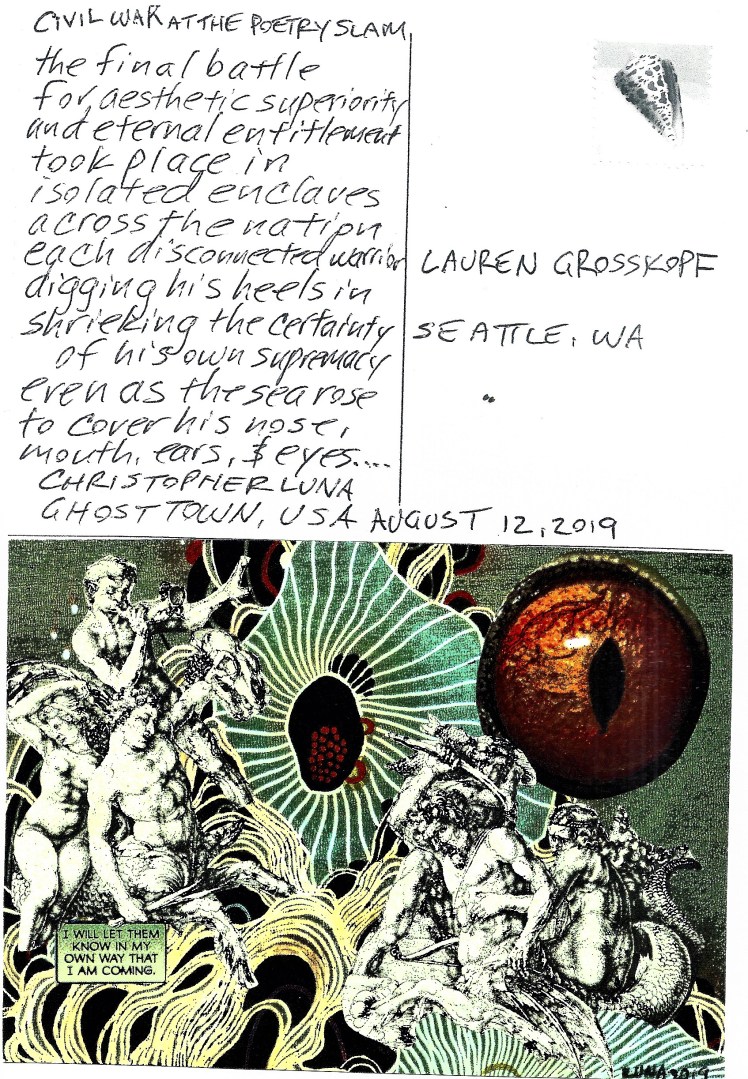 CIVIL WAR AT THE POETRY SLAM
the final battle
for aesthetic superiority
and eternal entitlement
took place in
isolated enclaves
across the nation
each disconnected warrior
digging his heels in
shrieking the certainty
of his own supremacy
even as the sea rose
to cover his nose,
mouth, ears, & eyes....
CHRISTOPHER LUNA
GHOST TOWN, USA AUGUST 12, 2019
LAUREN GROSSKOPF
SEATTLE, WA
I WILL LET THEM
KNOW IN MY
OWN WAY THAT
I AM COMING.
LUNA 2019